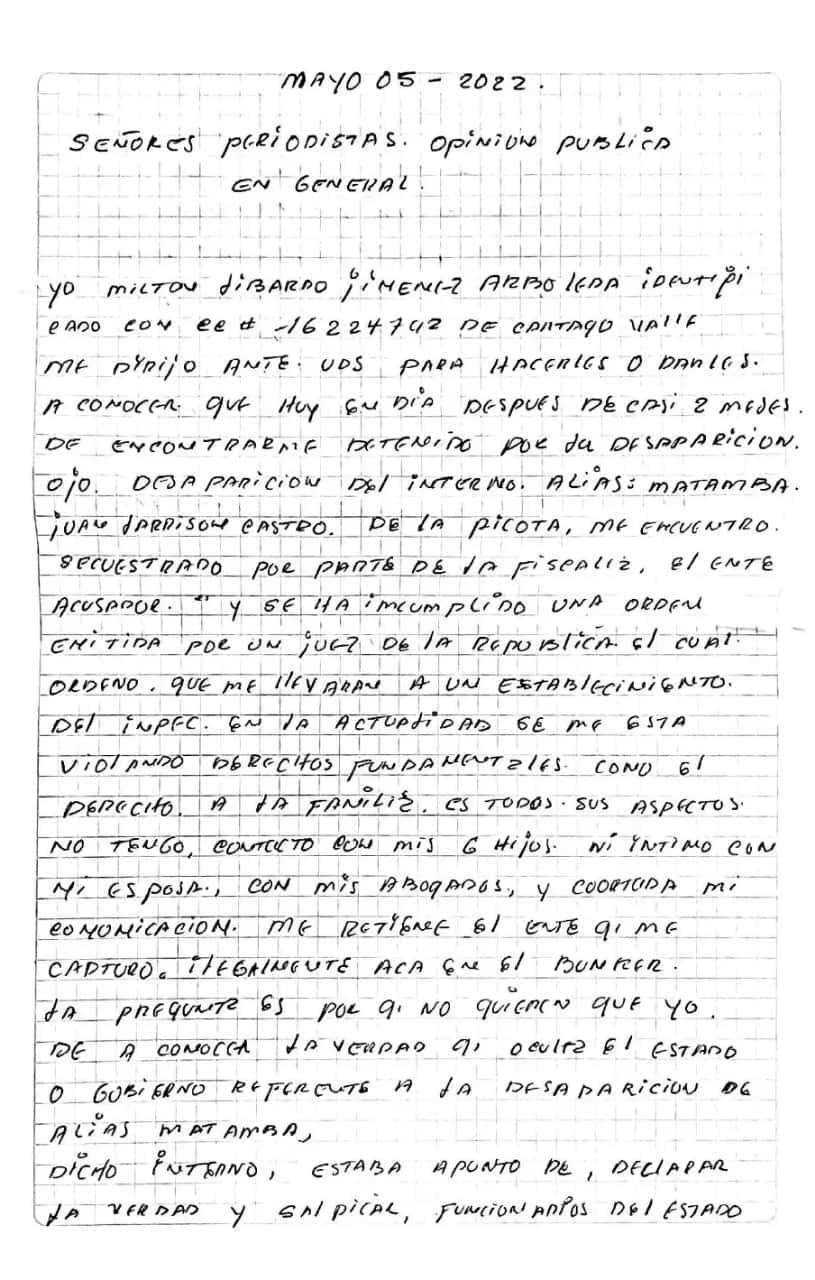 MAYO 05 - 2022.
SEÑORES PERIODISTAS. OPINION PUBLICA
EN GENERAL.
YO MILTON LIBARDO JIMENEZ ARBOLEDA IDENTIFI
CADO CON CC # 16224742 DE CARTAGO VALLE
ME DYRIJO ANTE. UDS PARA HACERLES O DARLES.
A CONOCER. QUE HUY EN DIA DESPUES DE CASI 2 MESES.
DE ENCONTRARME DETENIDO POR LA DESAPARICION.
OJO. DESAPARICION DEL INTERNO. ALIAS: MATAMBA.
JUAN LARRISON CASTRO. DE LA PICOTA, ME ENCUENTRO.
SECUESTRADO POR PARTE DE LA FISCALIA, EL ENTE
ACUSADOR. "" Y SE HA IMCUMPLIDO UNA ORDEN
EMITIDA POR UN JUEZ DE LA REPUBLICA EL CUAL.
ORDENO. QUE ME LLEVARAN A UN ESTABLECIMIENTO.
DEL INPEC. EN LA ACTUALIDAD SE ME ESTA
VIOLANDO DERECHOS FUNDAMENTALES. COMO EL
DERECHO. A LA FAMILIA. ES TODOS. SUS ASPECTOS.
NO TENGO, CONTACTO CON MIS 6 HIJOS. NI YNTIMO CON
MI ESPOSA., CON MIS ABOGADOS., Y COORTADA MI
COMONICACION. ME RETIENE EL ENTE QI ME
CAPTURO. ILEGALMENTE ACA EN EL BUNKER.
LA PREGUNTA ES POR QI NO QUIEREN QUE YO.
DE A CONOCER LA VERDAD QI OCULTA EL ESTADO
O GOBIERNO REFERENTE A LA DESAPARICION DE
ALIAS MATAMBA,
DICHO INTERNO, ESTABA APUNTO DE, DECLARAR
LA VERDAD Y SALPICAR, FUNCIONARIOS DEL ESTADO